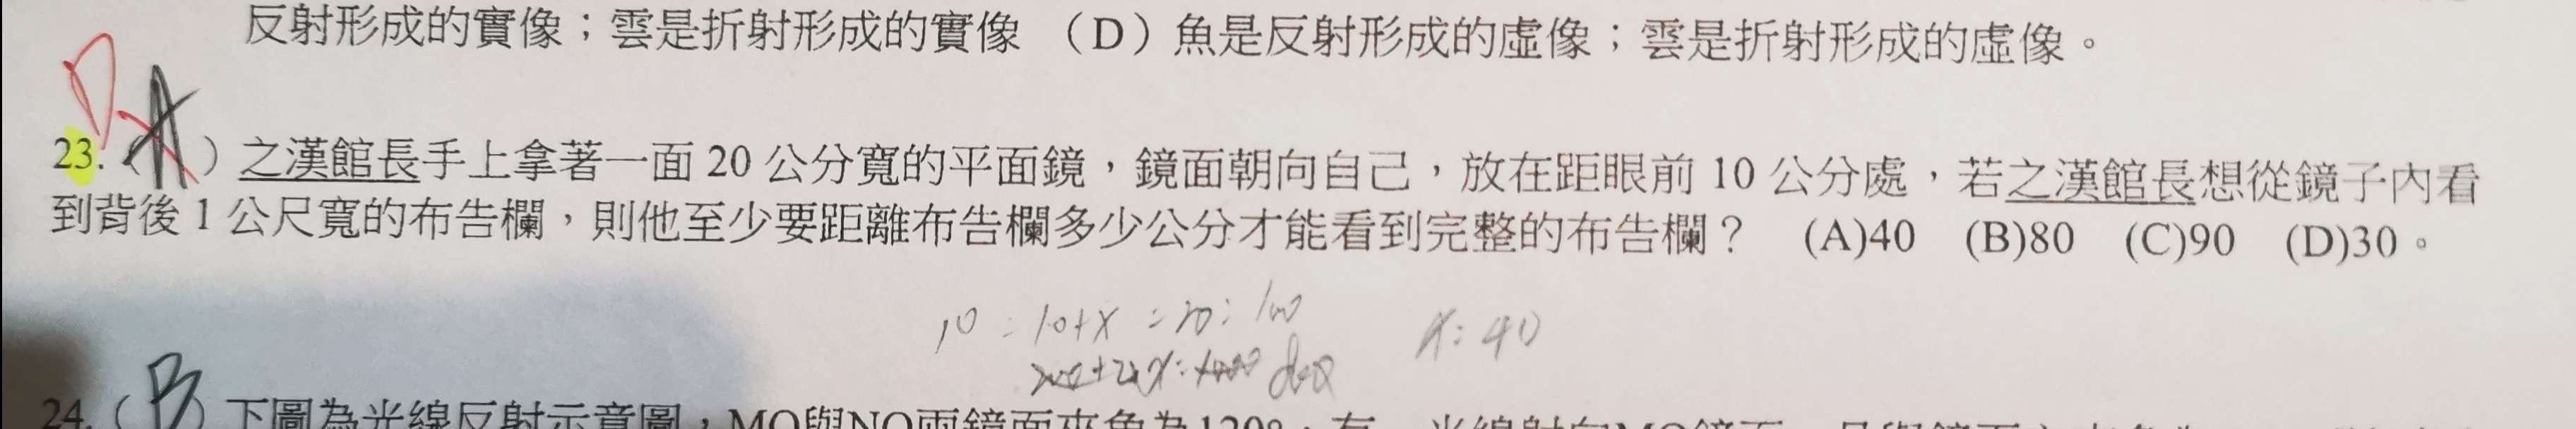 反射形成的實像；雲是折射形成的實像 （D）魚是反射形成的虛像；雲是折射形成的虛像。
D
23.（A）之漢館長手上拿著一面 20 公分寬的平面鏡，鏡面朝向自己，放在距眼前 10 公分處，若之漢館長想從鏡子內看
到背後 1 公尺寬的布告欄，則他至少要距離布告欄多少公分才能看到完整的布告欄？ (A)40 (B)80 (C)90 (D)30。
10 : 10+x = 20 : 100
x = 40
24.（B）下圖為光線反射示意圖，MO與NO兩鏡面夾角為120°，有